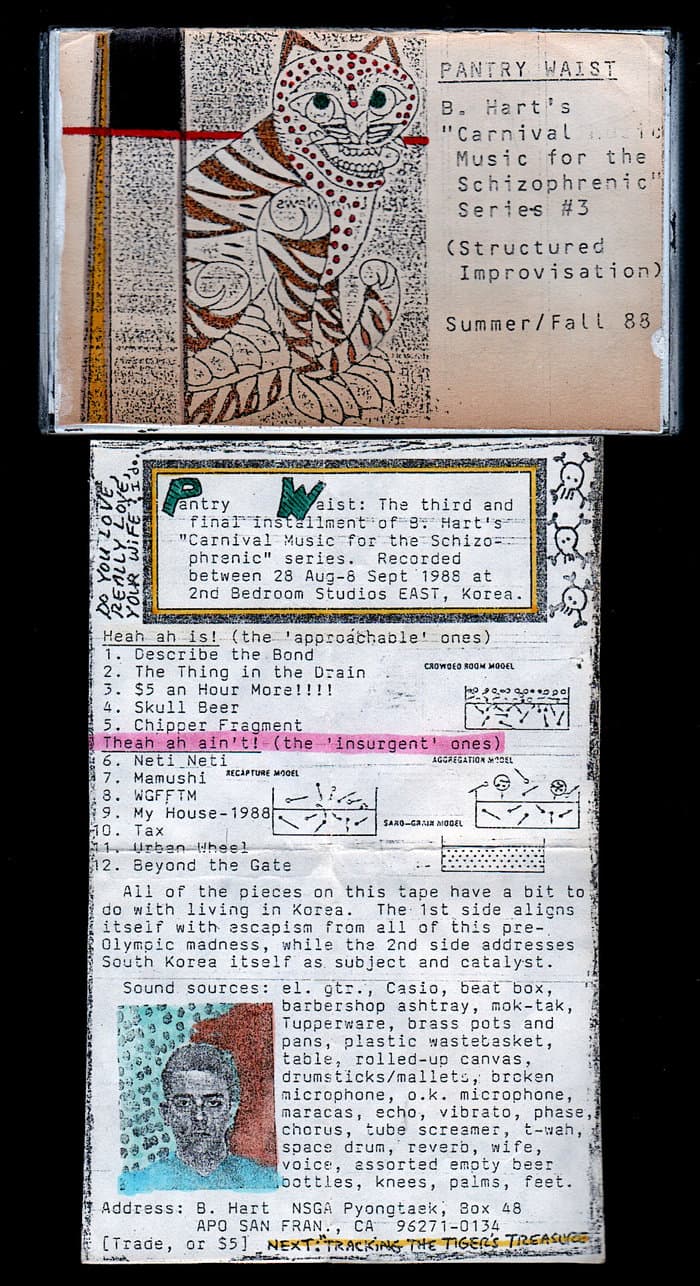 PANTRY WAIST
B. Hart's
"Carnival
Music for the
Schizophrenic"
Series #3
(Structured
Improvisation)
Summer/Fall 88
DO YOU LOVE
REALLY LOVE,
YOUR WIFE? I do..
Pantry Waist: The third and
final installment of B. Hart's
"Carnival Music for the Schizo-
phrenic" series. Recorded
between 28 Aug-8 Sept 1988 at
2nd Bedroom Studios EAST, Korea.
Heah ah is! (the 'approachable' ones)
1. Describe the Bond
2. The Thing in the Drain
3. $5 an Hour More!!!!
4. Skull Beer
5. Chipper Fragment
CROWDED ROOM MODEL
Theah ah ain't! (the 'insurgent' ones)
6. Neti Neti
7. Mamushi
8. WGFFTM
9. My House-1988
10. Tax
11. Urban Wheel
12. Beyond the Gate
AGGREGATION MODEL
RECAPTURE MODEL
SAND-GRAIN MODEL
All of the pieces on this tape have a bit to
do with living in Korea. The 1st side aligns
itself with escapism from all of this pre-
Olympic madness, while the 2nd side addresses
South Korea itself as subject and catalyst.
Sound sources: el. gtr., Casio, beat box,
barbershop ashtray, mok-tak,
Tupperware, brass pots and
pans, plastic wastebasket,
table, rolled-up canvas,
drumsticks/mallets, broken
microphone, o.k. microphone,
maracas, echo, vibrato, phase,
chorus, tube screamer, t-wah,
space drum, reverb, wife,
voice, assorted empty beer
bottles, knees, palms, feet.
Address: B. Hart NSGA Pyongtaek, Box 48
APO SAN FRAN., CA 96271-0134
[Trade, or $5] NEXT: "TRACKING THE TIGER'S TREASURE